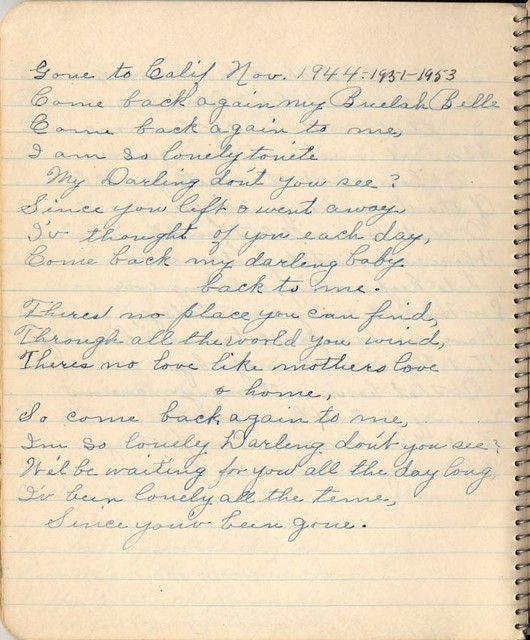 Gone to Calif Nov. 1944-1951-1953
Come back again my Buelah Belle
Come back again to me,
I am so lonely tonite
My Darling dont you see?
Since you left & went away
I'v thought of you each day,
Come back my darling baby
back to me.
Theres no place you can find,
Through all the world you wind,
Theres no love like mothers love
& home,
So come back again to me,
I'm so lonely Darling don't you see?
We'l be waiting for you all the day long,
I'v been lonely all the time,
Since you'v been gone.